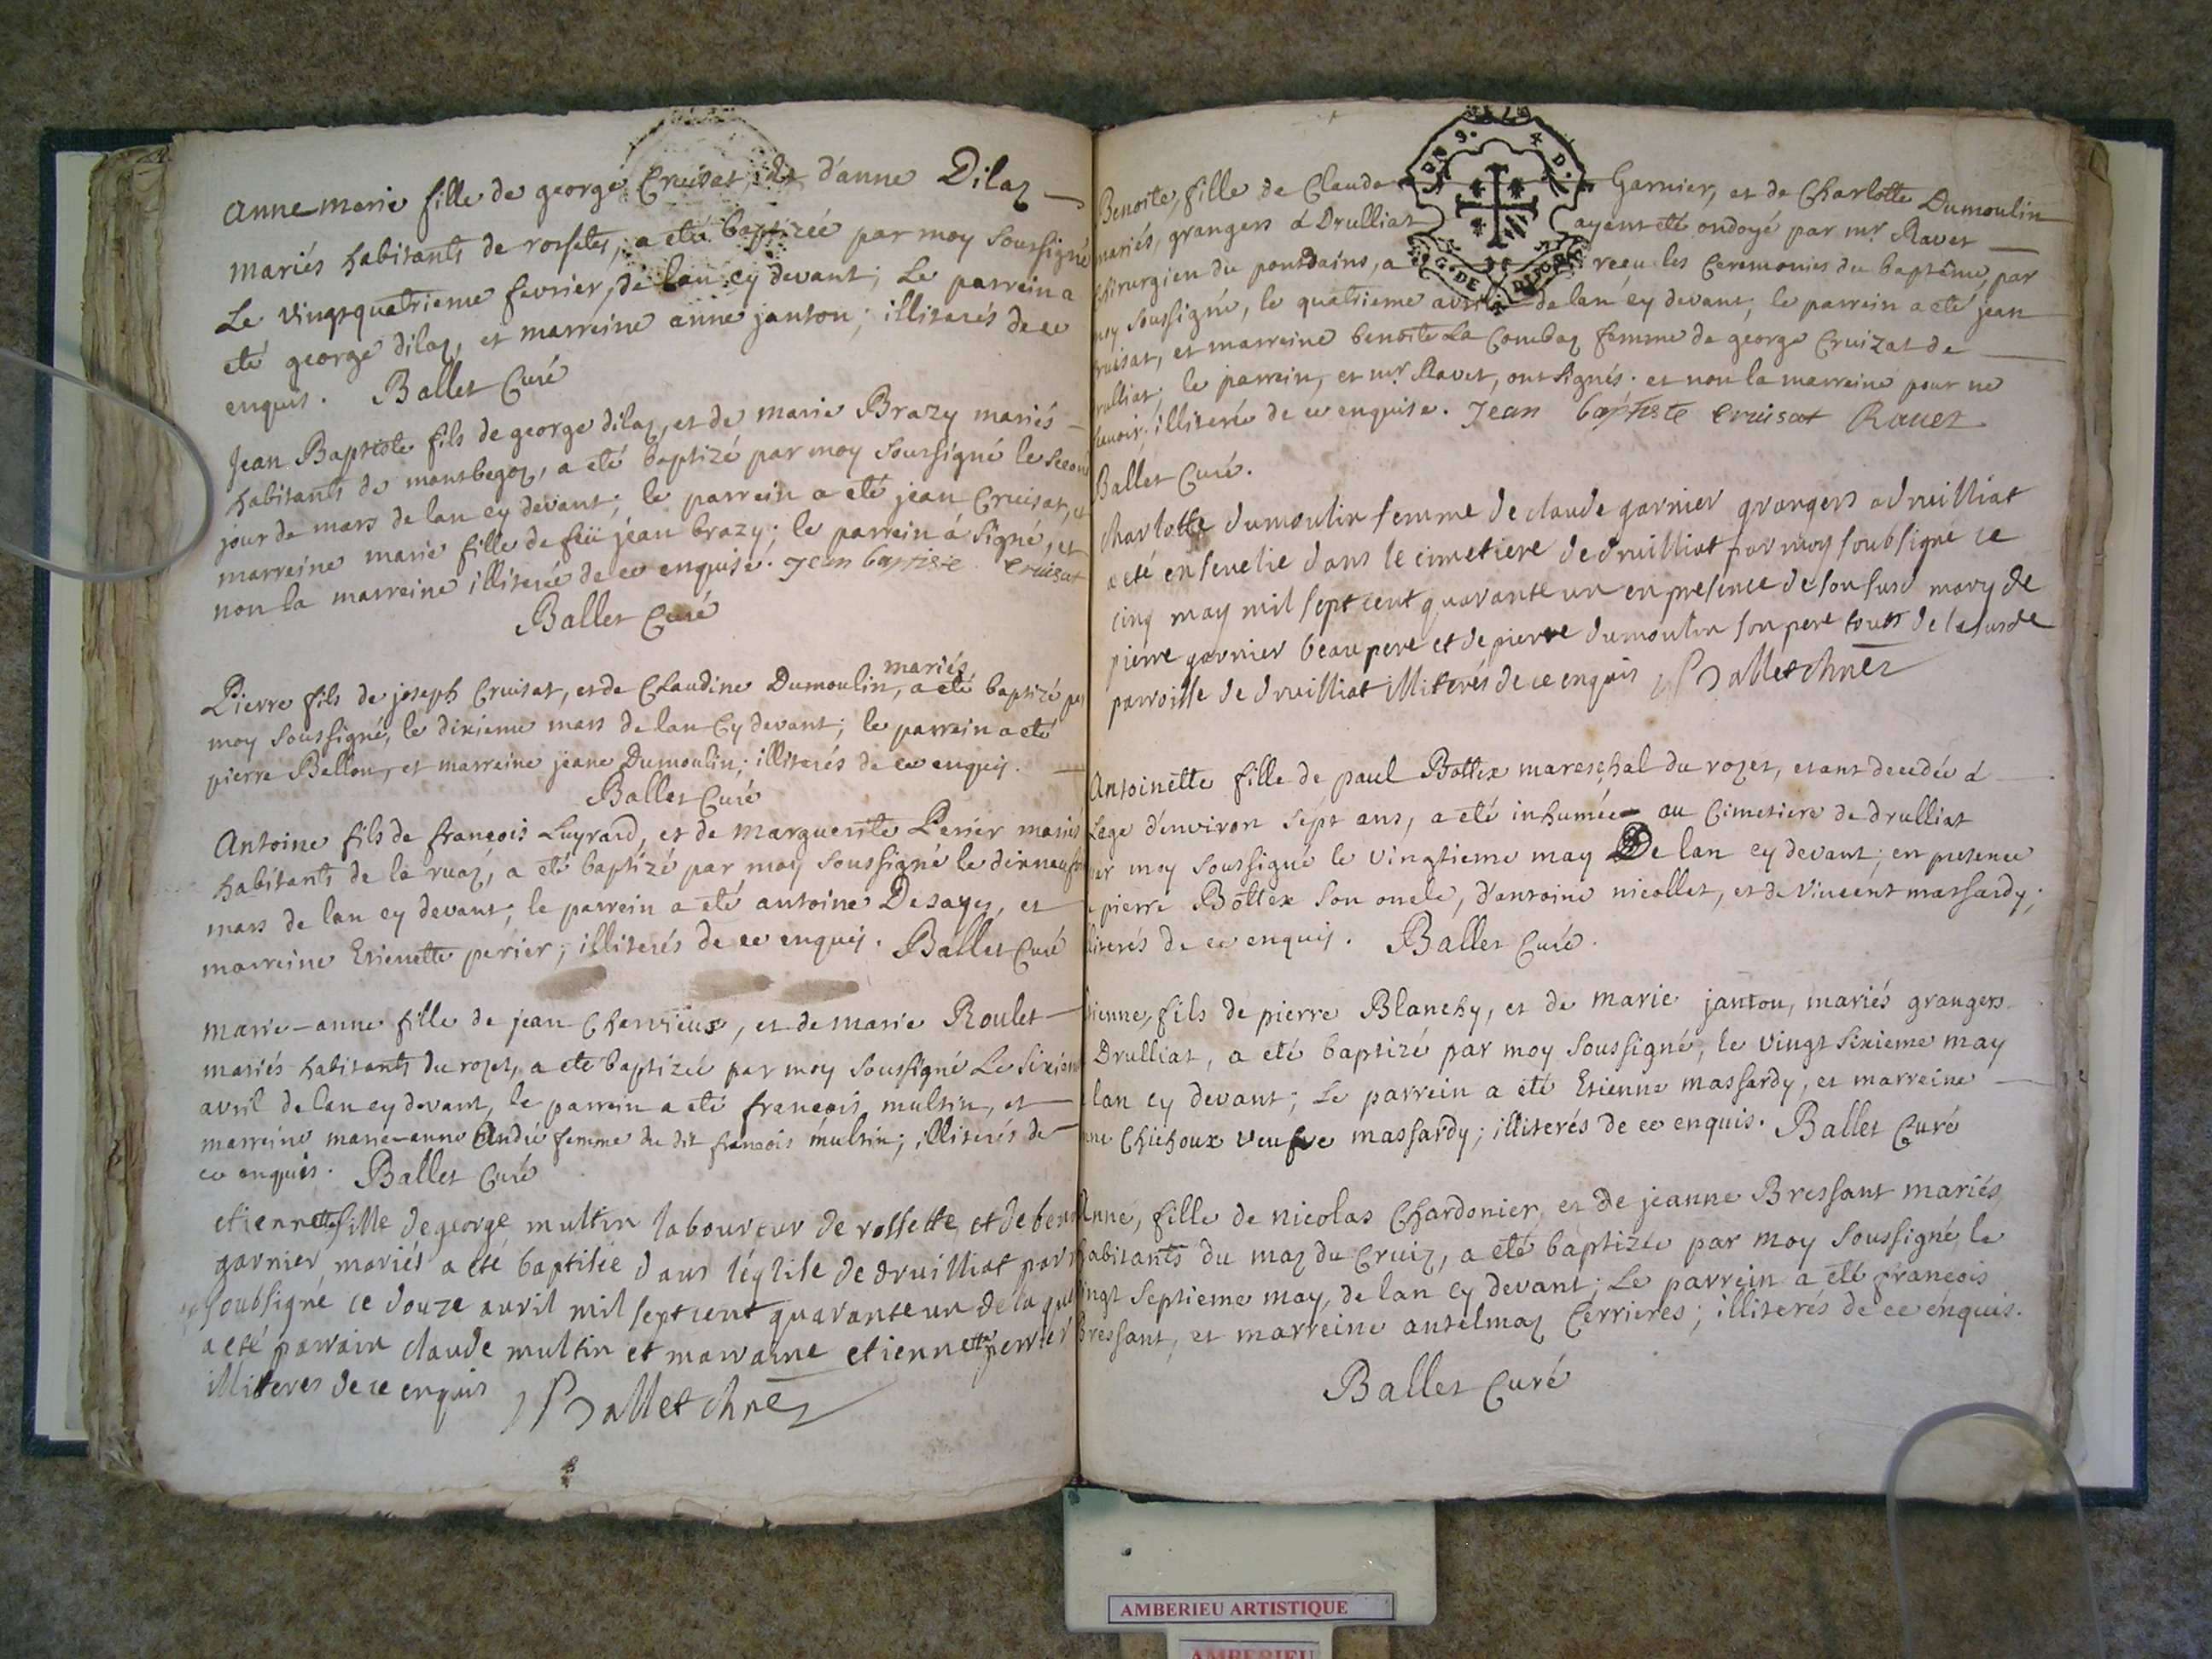 Anne marie fille de george Cruisat, et d'anne Dilaz
mariés habitants de rossetes, a eté baptizéé par moy soussigné
Le vingtquatrieme fevrier, de lan cy devant; Le parrein a
eté george dilaz, et marreine anne janton; illiterés de ce
enquis. Ballet Curé
Jean Baptiste fils de george dilaz, et de marie Brazy mariés
habitants de montbegoz, a eté baptizé par moy soussigné le second
jour de mars de lan cy devant; le parrein a eté jean Cruisat, et
marreine marie fille de feü jean brazy; le parrein á signé, et
non la marreine illiterée de ce enquise. Jean baptiste Cruisat
Ballet Curé
mariés
Pierre fils de joseph Cruisat, et de Claudine Dumoulin, a eté baptizé par
moy soussigné, le dixieme mars de lan Cy devant; le parrein a eté
pierre Bellon, et marreine jeane Dumoulin; illiterés de ce enquis.
Ballet Curé
Antoine fils de françois Luyrard, et de marguerite Perier mariés
habitants de la ruaz, a eté baptizé par moy soussigné le dixneuf
mars de lan cy devant; le parrein a eté antoine Desayes, et
marreine Etienette perier; illiterés de ce enquis. Ballet Curé
marie-anne fille de jean Chervieux, et de marie Roulet
mariés habitants du rozet, a eté baptizéé par moy soussigné Le sixieme
avril de lan cy devant, le parrein a eté françois multin, et
marreine marie-anne André femme du dit francois multin; illiterés de
ce enquis. Ballet Curé
etiennette fille de george multin laboureur de rossette et de
garnier mariés a eté baptisée dans léglise de druilliat par
soubsigné ce douze avril mil sept cent quarante un de la
a eté parrain claude multin et marraine etiennette perrier
illiteres de ce enquis Ballet
Benoite, fille de Claude Garnier, et de Charlotte Dumoulin
mariés, grangers á Drulliat ayant eté ondoyé par mr. Ravet
chirurgien du pontdains, a receu les Ceremonies du baptême, par
moy soussigné, le quatrieme avril de lan cy devant, le parrein a eté jean
Cruisat, et marreine benoite La Combaz femme de george Cruizat de
drulliat, le parrein, et mr. Ravet, ont signés. et non la marreine pour ne
illiterée de ce enquise. Jean baptiste Cruisat Ravet
Ballet Curé.
charlotte dumoulin femme de claude garnier grangers a druilliat
a eté ensevelie dans le cimetiere de druilliat par moy soubsigné ce
cinq may mil sept cent quarante un en presence de son susd mary de
pierre garnier beaupere et de pierre dumoulin son pere touts de la susde
parroisse de druilliat illiterés de ce enquis Ballet
Antoinette fille de paul Bottex mareschal du rozet, etant decedée á
Lage d'environ sépt ans, a eté inhumée au Cimetiere de drulliat
par moy soussigné le vingtieme may De lan cy devant; en presence
pierre Bottex son oncle, d'antoine nicollet, et de vincent massardy;
illiterés de ce enquis. Ballet Curé.
Etienne, fils de pierre Blanchy, et de marie janton, mariés grangers
Drulliat, a eté baptizé par moy soussigné, le vingt sixieme may
lan cy devant; Le parrein a eté Etienne massardy, et marreine
Chichoux veufve massardy; illiterés de ce enquis. Ballet Curé
Anne, fille de nicolas Chardonier, et de jeanne Bressant mariés
habitants du maz du Cruiz, a eté baptizée par moy soussigné, le
vingt septieme may, de lan Cy devant; Le parrein a eté françois
Bressant, et marreine antelmaz Cerrieres; illiterés de ce enquis.
Ballet Curé
AMBERIEU ARTISTIQUE
AMBERIEU